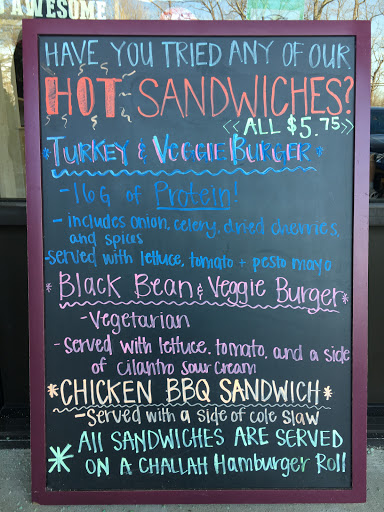 AWESOME
HAVE YOU TRIED ANY OF OUR
HOT SANDWICHES?
<<ALL $5.75>>
*TURKEY & VEGGIE BURGER*
-16G of Protein!
- includes onion, celery, dried cherries,
and spices
-served with lettuce, tomato + pesto mayo
*Black Bean & Veggie Burger*
-Vegetarian
-Served with lettuce, tomato, and a side
of cilantro sour cream
*CHICKEN BBQ SANDWICH*
-Served with a side of cole slaw
* All SANDWICHES ARE SERVED
ON A CHALLAH Hamburger Roll